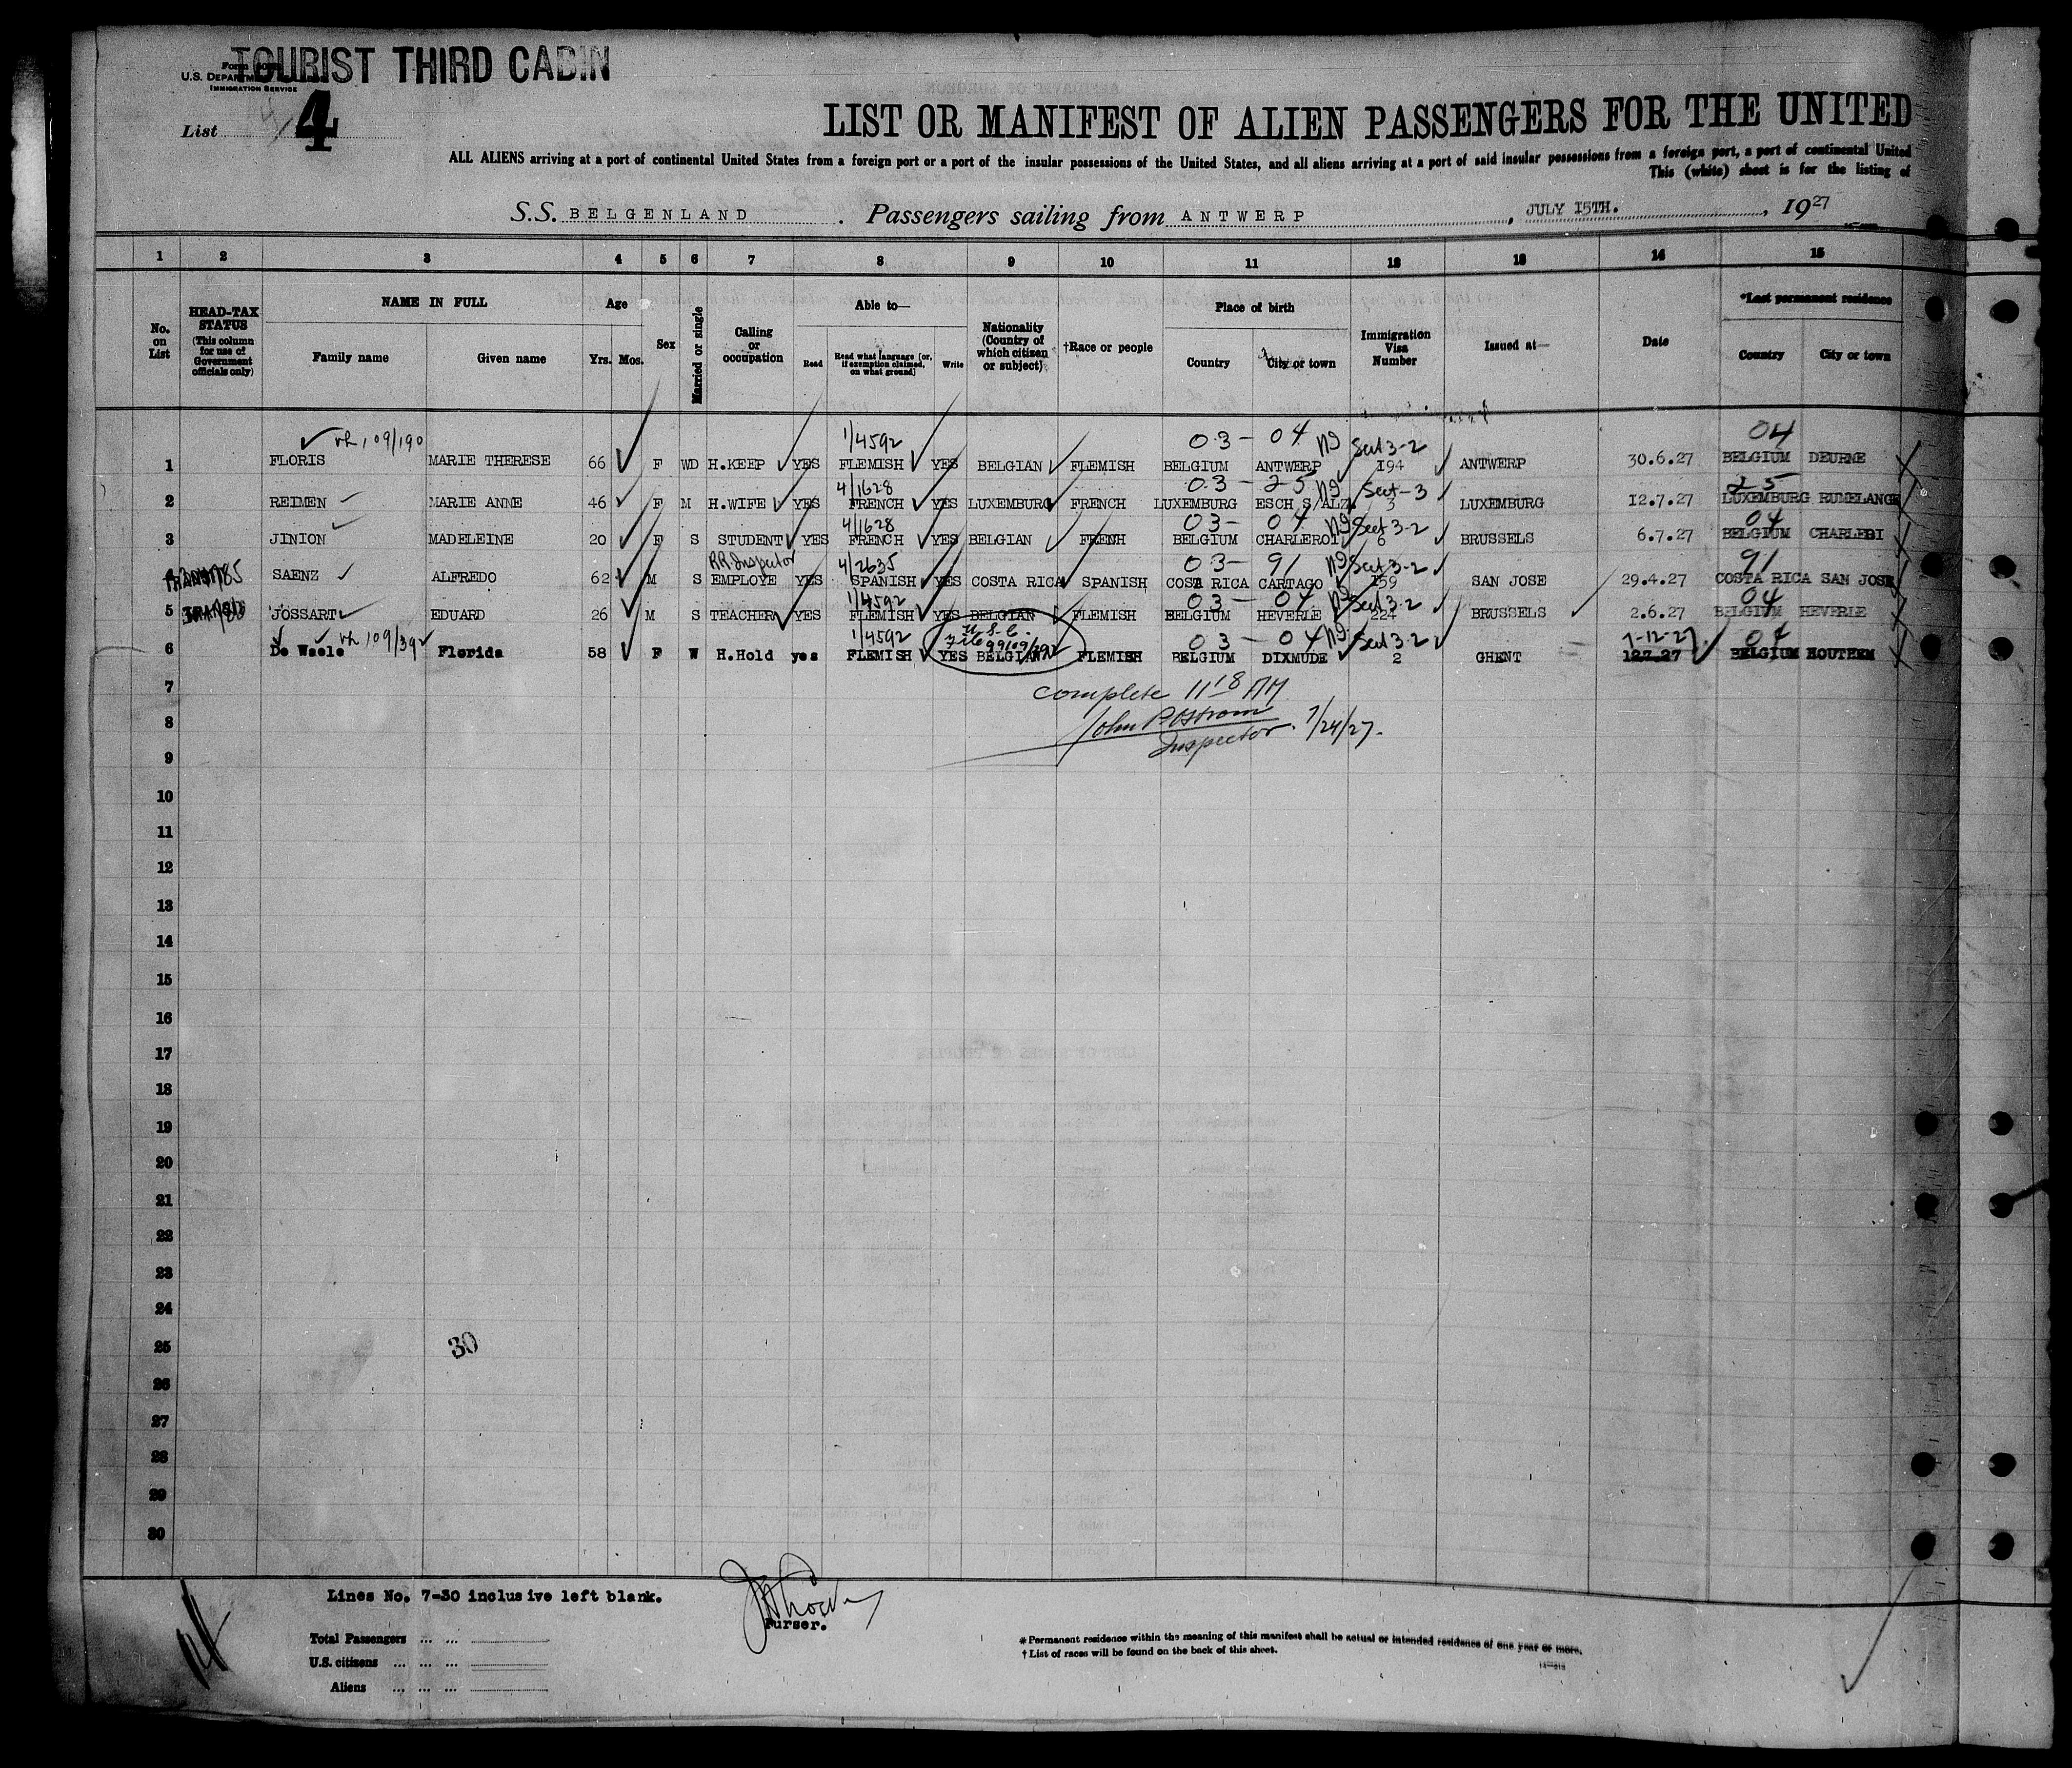 TOURIST THIRD CABIN
U.S. DEPARTM
IMMIGRATION SERVICE
List 4
LIST OR MANIFEST OF ALIEN PASSENGERS FOR THE UNITED
ALL ALIENS arriving at a port of continental United States from a foreign port or a port of the insular possessions of the United States, and all aliens arriving at a port of said insular possessions from a foreign port, a port of continental United
This (white) sheet is for the listing of
S.S. BELGENLAND. Passengers sailing from ANTWERP, JULY 15TH., 1927
1 2 3 4 5 6 7 8 9 10 11 12 13 14 15
No. on List
HEAD-TAX STATUS (This column for use of Government officials only)
NAME IN FULL
Family name Given name
Age
Yrs. Mos.
Sex
Married or single
Calling or occupation
Able to—
Read
Read what language [or, if exemption claimed, on what ground]
Write
Nationality (Country of which citizen or subject)
†Race or people
Place of birth
Country City or town
Immigration Visa Number
Issued at—
Date
*Last permanent residence
Country City or town
109/190 1/4592 03 - 04 Sect 3-2 04
1 FLORIS MARIE THERESE 66 F WD H.KEEP YES FLEMISH YES BELGIAN FLEMISH BELGIUM ANTWERP 194 ANTWERP 30.6.27 BELGIUM DEURNE
4/1628 03 - 25 Sect-3 25
2 REIMEN MARIE ANNE 46 F M H.WIFE YES FRENCH YES LUXEMBURG FRENCH LUXEMBURG ESCH S/ALZ. 3 LUXEMBURG 12.7.27 LUXEMBURG RUMELANGE
4/1628 03 - 04 Sect 3-2 04
3 JINION MADELEINE 20 F S STUDENT YES FRENCH YES BELGIAN FRENH BELGIUM CHARLEROI 6 BRUSSELS 6.7.27 BELGIUM CHARLERI
RR.Inspector 4/2635 03 - 91 Sect 3-2 91
4 SAENZ ALFREDO 62 M S EMPLOYE YES SPANISH YES COSTA RICA SPANISH COSTA RICA CARTAGO 159 SAN JOSE 29.4.27 COSTA RICA SAN JOSE
1/4592 03 - 04 Sect 3-2 04
5 JOSSART EDUARD 26 M S TEACHER YES FLEMISH YES BELGIAN FLEMISH BELGIUM HEVERLE 224 BRUSSELS 2.6.27 BELGIUM HEVERLE
109/392 1/4592 U.S.C. 99109/392 03 - 04 Sect 3-2 7-12-27 04
6 De Weele Florida 58 F W H.Hold yes FLEMISH YES BELGIAN FLEMISH BELGIUM DIXMUDE 2 GHENT 127.27 BELGIUM HOUTHEM
7 complete 11 18 AM
8 John P. Ostrom 7/24/27.
Inspector
9
10
11
12
13
14
15
16
17
18
19
20
21
22
23
24
25 30
26
27
28
29
30
Lines No. 7-30 inclusive left blank.
Purser.
Total Passengers ... ...
U.S. citizens ... ... ...
Aliens ... ... ...
* Permanent residence within the meaning of this manifest shall be actual or intended residence of one year or more.
† List of races will be found on the back of this sheet.